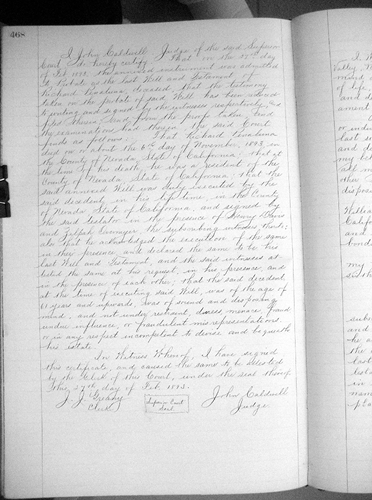 468
I John Caldwell Judge of the said Superior
Court do hereby certify That on the 27th day
of Feb 1893, the annexed instrument was admitted
to Probate as the Last Will and Testament of
Richard deceased, that the testimony
taken on the probate of said Will has been reduced
to writing and signed by the witnesses respectively, and
filed herein. And, from the proofs taken and
the examinations had therein, the said Court
finds as follows: That Richard
died on or about the 6th day of November, 1892, in
the County of Nevada, State of California; that at
the time of his death, he was a resident of the
County of Nevada, State of California; that the
said annexed Will was duly executed by the
said decedent in his life time, in the County
of Nevada, State of California, and signed by
the said testator in the presence of
and the subscribing witnesses thereto;
also that he acknowledged the execution of the same
in their presence, and declared the same to be his
Last Will and Testament, and the said witnesses at-
tested the same at his request, in his presence, and
in the presence of each other; that the said decedent
at the time of executing said Will, was of the age of
years and upwards, was of sound and disposing
mind, and not under restraint, duress, menace, fraud
undue influence, or fraudulent misrepresentations
or in any respect incompetent to devise and bequeath
his estate.
In Witness Whereof, I have signed
this certificate, and caused the same to be attested
by the Clerk of this Court, under the seal thereof
this 27th day of Feb. 1893.
J. J. Greany
Clerk
Superior Court
Seal
John Caldwell
Judge